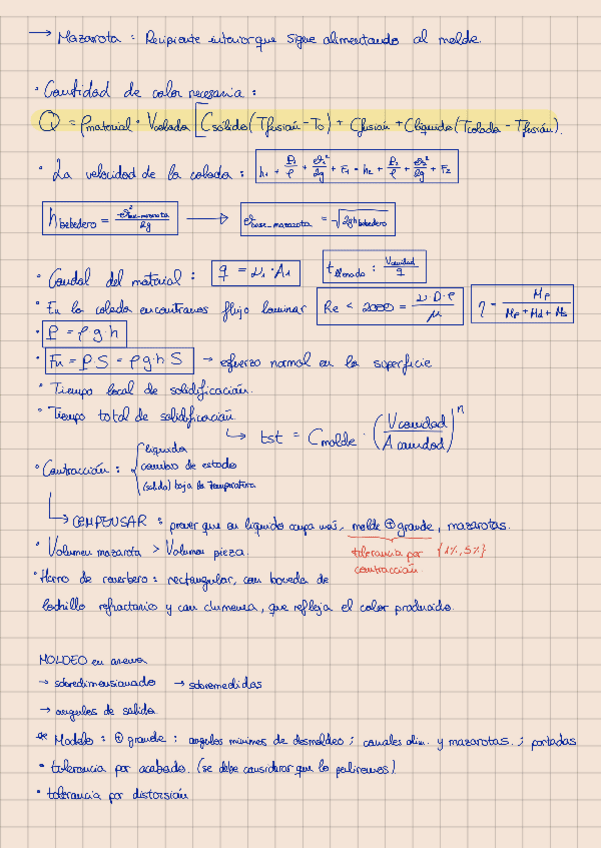 → Mazarota : Recipiente interior que sigue alimentando al molde.
· Cantidad de calor necesaria :
Q = ρmaterial · Vcolada [Csólido (Tfusión - T0) + Cfusión + Clíquido (Tcolada - Tfusión).
· La velocidad de la colada : h1 + P1/ρ + v1²/2g + F1 = h2 + P2/ρ + v2²/2g + F2
hbebedero = v²base-mazarota/2g → vbase_mazarota = √2g hbebedero
· Caudal del material : q = v1 · A1 tllenado : Vcavidad/q
· En la colada encontramos flujo laminar Re < 2000 = v·D·ρ/μ η = Mp/Mp + Md + Ms
· P = ρ g h
· Fn = P S = ρ g·h S → esfuerzo normal en la superficie
· Tiempo local de solidificación.
· Tiempo total de solidificación
↳ tst = Cmolde · (Vcavidad/Acavidad)ⁿ
· Contracción : { líquida
cambio de estado
(sólido) baja la temperatura
↳ COMPENSAR : prever que en líquido ocupa más, molde ⊕ grande, mazarotas.
tolerancia por contracción {1%, 5%}
· Volumen mazarota > Volumen pieza.
· Horno de reverbero : rectangular, con boveda de
ladrillo refractario y con chimenea, que refleja el calor producido.
MOLDEO en arena
→ sobredimensionado → sobremedidas
→ angulos de salida
* Modelo : ⊕ grande : angulos minimos de desmoldeo ; canales alim. y mazarotas. ; portadas
· tolerancia por acabado. (se debe considerar que lo puliremos)
· tolerancia por distorsión